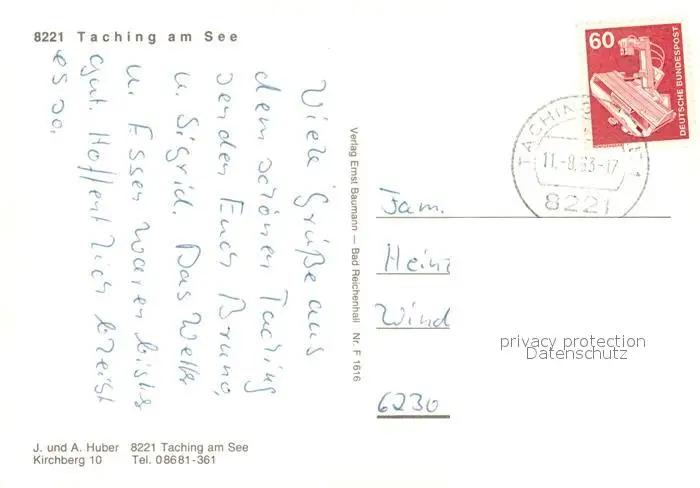 8221 Taching am See
Viele Grüße aus
dem schönen Taching
senden Euch Bruno,
u. Sigrid. Das Wetter
u. Essen waren bisher
gut. Hoffentlich bleibt
es so.
Verlag Ernst Baumann — Bad Reichenhall Nr. F 1616
60
DEUTSCHE BUNDESPOST
TACHING
11.-8.83-17
8221
Fam.
Heinz
Wind
6230
privacy protection
Datenschutz
J. und A. Huber 8221 Taching am See
Kirchberg 10 Tel. 08681-361